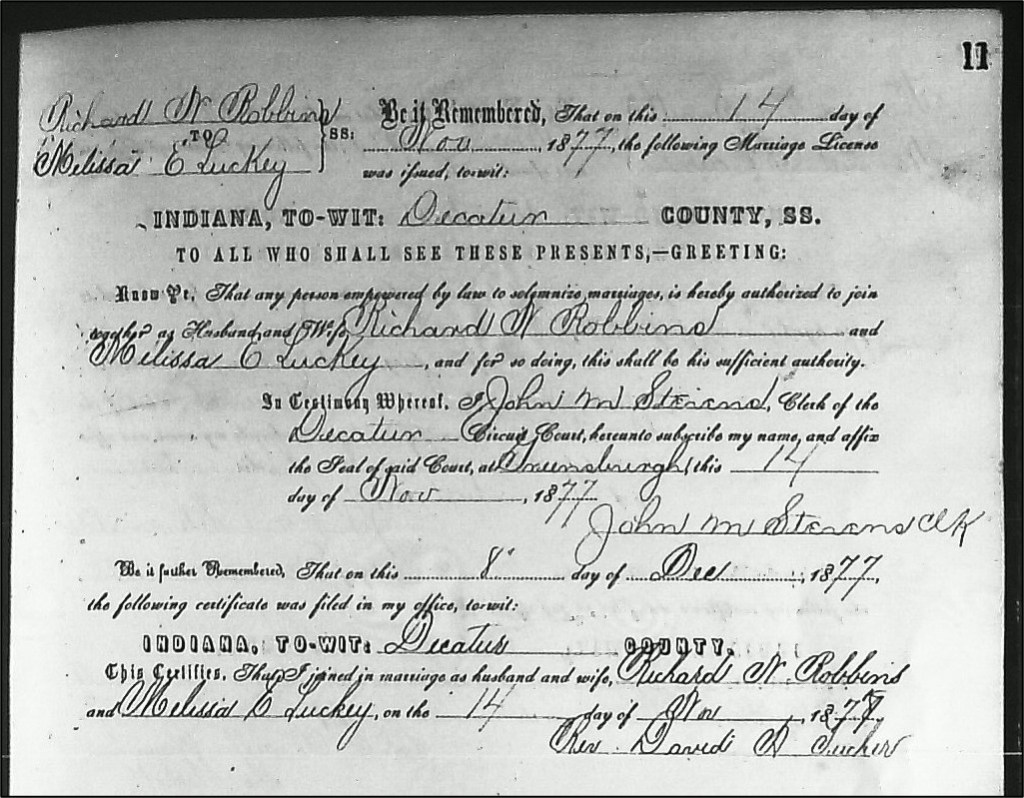 11
Richard N Robbins
TO
Melissa E Luckey
SS:
Be it Remembered, That on this 14 day of
Nov, 1877, the following Marriage License
was issued, to-wit:
INDIANA, TO-WIT: Decatur COUNTY, SS.
TO ALL WHO SHALL SEE THESE PRESENTS,—GREETING:
Know Ye, That any person empowered by law to solemnize marriages, is hereby authorized to join
together as Husband and Wife Richard N Robbins and
Melissa E Luckey, and for so doing, this shall be his sufficient authority.
In Testimony Whereof, I John M Stevens, Clerk of the
Decatur Circuit Court, hereunto subscribe my name, and affix
the Seal of said Court, at Greensburgh, this 14
day of Nov, 1877
John M Stevens Clk
Be it further Remembered, That on this 8" day of Dec, 1877,
the following certificate was filed in my office, to-wit:
INDIANA, TO-WIT: Decatur COUNTY.
This Certifies, That I joined in marriage as husband and wife, Richard N. Robbins
and Melissa E Luckey, on the 14 day of Nov, 1877,
Rev. David A Tucker